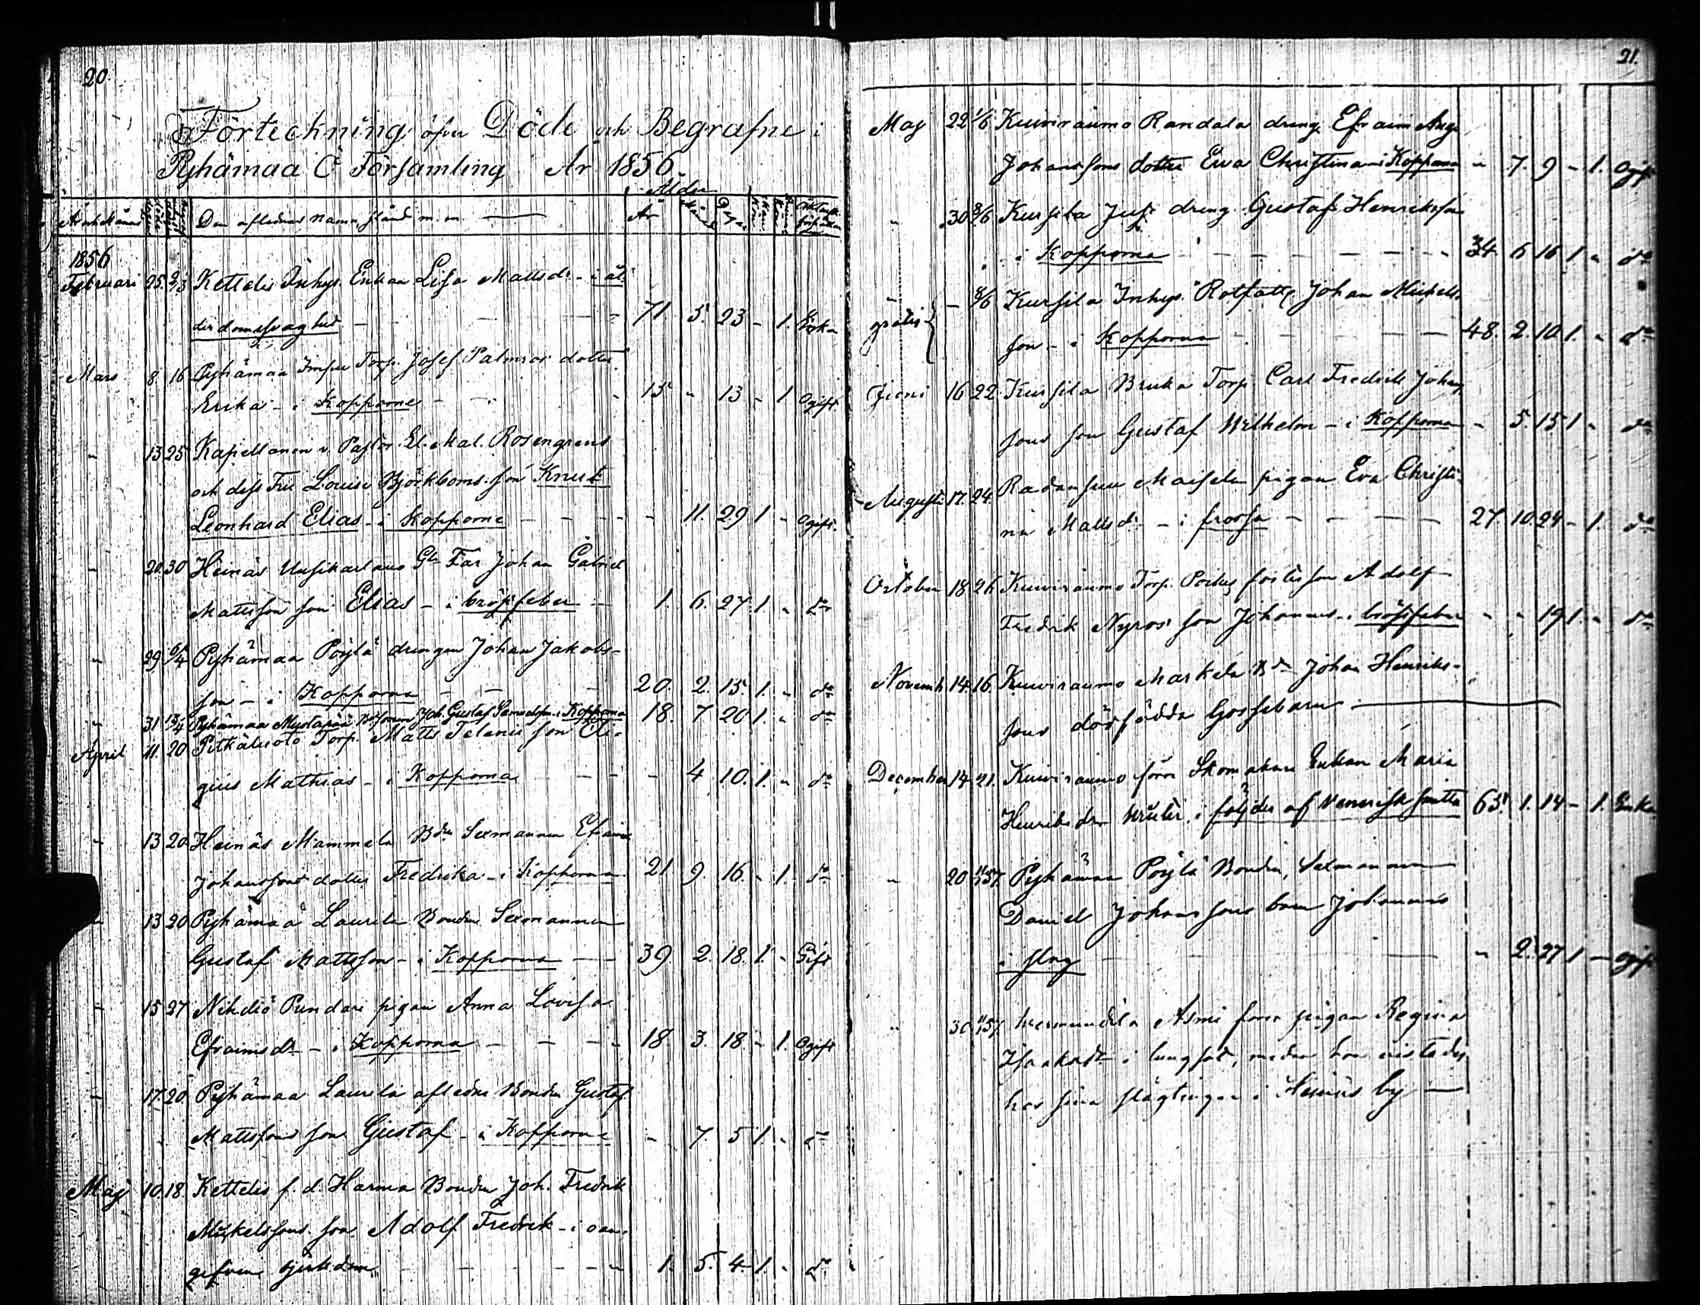 20
Förteckning öfver Döde och Begrafne i
Pyhämaa Ö Församling År 1856
Ålder
Den aflednes namn, stånd m.m. År
1856
Februari 25 2/3 Kettelis Inhys. Enkan Lisa Mattsdr - i ål-
derdomssvaghet 71 5. 23 - 1. Enka
Mars 8 16 Pyhämaa Torp. Josef Palmros dotter
Erika - i Kopporne 15 - 13 - 1 Ogift
- 13 25 Kapellanen v. Pastor El. Mat. Rosengrens
och dess Fru Louise Björkboms son Knut
Leonhard Elias - i Kopporne - 11. 29 1 - Ogift.
- 20 30 Heinäs Uusikartano Gla Far Johan Gabriel
Mattsson son Elias - i bröstfeber 1. 6. 27. 1. - do
- 29 6/4 Pyhämaa Pöylä drengen Johan Jakobs-
son - i Kopporna 20 2. 15. 1. - do
- 31 13/4 Pyhämaa Mustapää Bdsonen Joh. Gustaf Samuelsson i Kopporna 18. 7 20 1. - do
April 11. 20 Pitkäluoto Torp. Matts Telanis son Eli-
gius Mathias - i Kopporna - 4 10. 1. - do
- 13 20 Heinäs Mammela Bdn Sexmannen Efraim
Johanssons dotter Fredrika - i Kopporna 21 9 16 - 1. do
- 13 20 Pyhämaa Laurila Bonden Sexmannen
Gustaf Mattsson - i Kopporna 39 2. 18. 1. - Gift
- 15 27 Nihdiö Pundari pigan Anna Lovisa
Efraimsdr - i Kopporna 18 3. 18. - 1. Ogift
- 17. 20 Pyhämaa Laurila afledne Bonden Gustaf
Mattssons son Gustaf - i Kopporna - 7. 5 1. - do
Maj 10. 18. Kettelis f. d. Harma Bonden Joh. Fredrik
Mickelssons son Adolf Fredrik - i oan-
gifven sjukdom 1. 5. 4. 1. - do
21.
Maj 22 1/6 Kuivirauma Randala dreng Efraim Aug.
Johanssons dotter Eva Christina i Kopporna - 7. 9 - 1. Ogift
- 30 8/6 Kursila dreng Gustaf Henriksson
i Kopporna 34 6 16 1 - do
gratis - 8/6 Kursila Inhys. Rotfattig Johan Mickels-
son - i Kopporna 48. 2. 10 1. - do
Juni 16 22 Kursila Bruka Torp. Carl Fredrik Johans-
sons son Gustaf Wilhelm - i Kopporna - 5. 15 1 - do
Augusti 17. 24. Maisela pigan Eva Christi-
na Mattsdr - i frossa 27. 10. 24 - 1. do
October 18 26. Kuivirauma Torp. Adolf
Fredrik Nyros son Johannes i bröstfeber - - 19 1 - do
Novemb. 14. 16. Kuivirauma Markela Bdn Johan Henriks-
sons dödfödda Gossebarn
December 14 21. Kuivirauma förra Skomakare Enkan Maria
Henriksdr i följder af Venerisk smitta 65. 1. 14 - 1. Enka
- 20 Pyhämaa Pöylä Bonden, Sexmannen
Daniel Johanssons barn Johannes
i slag - 2. 27 1 - ogift
- 30 Hermundila förra pigan Regina
Isaksdr i lungsot, medan hon vistades
hos sina slägtingar i Heinäs by